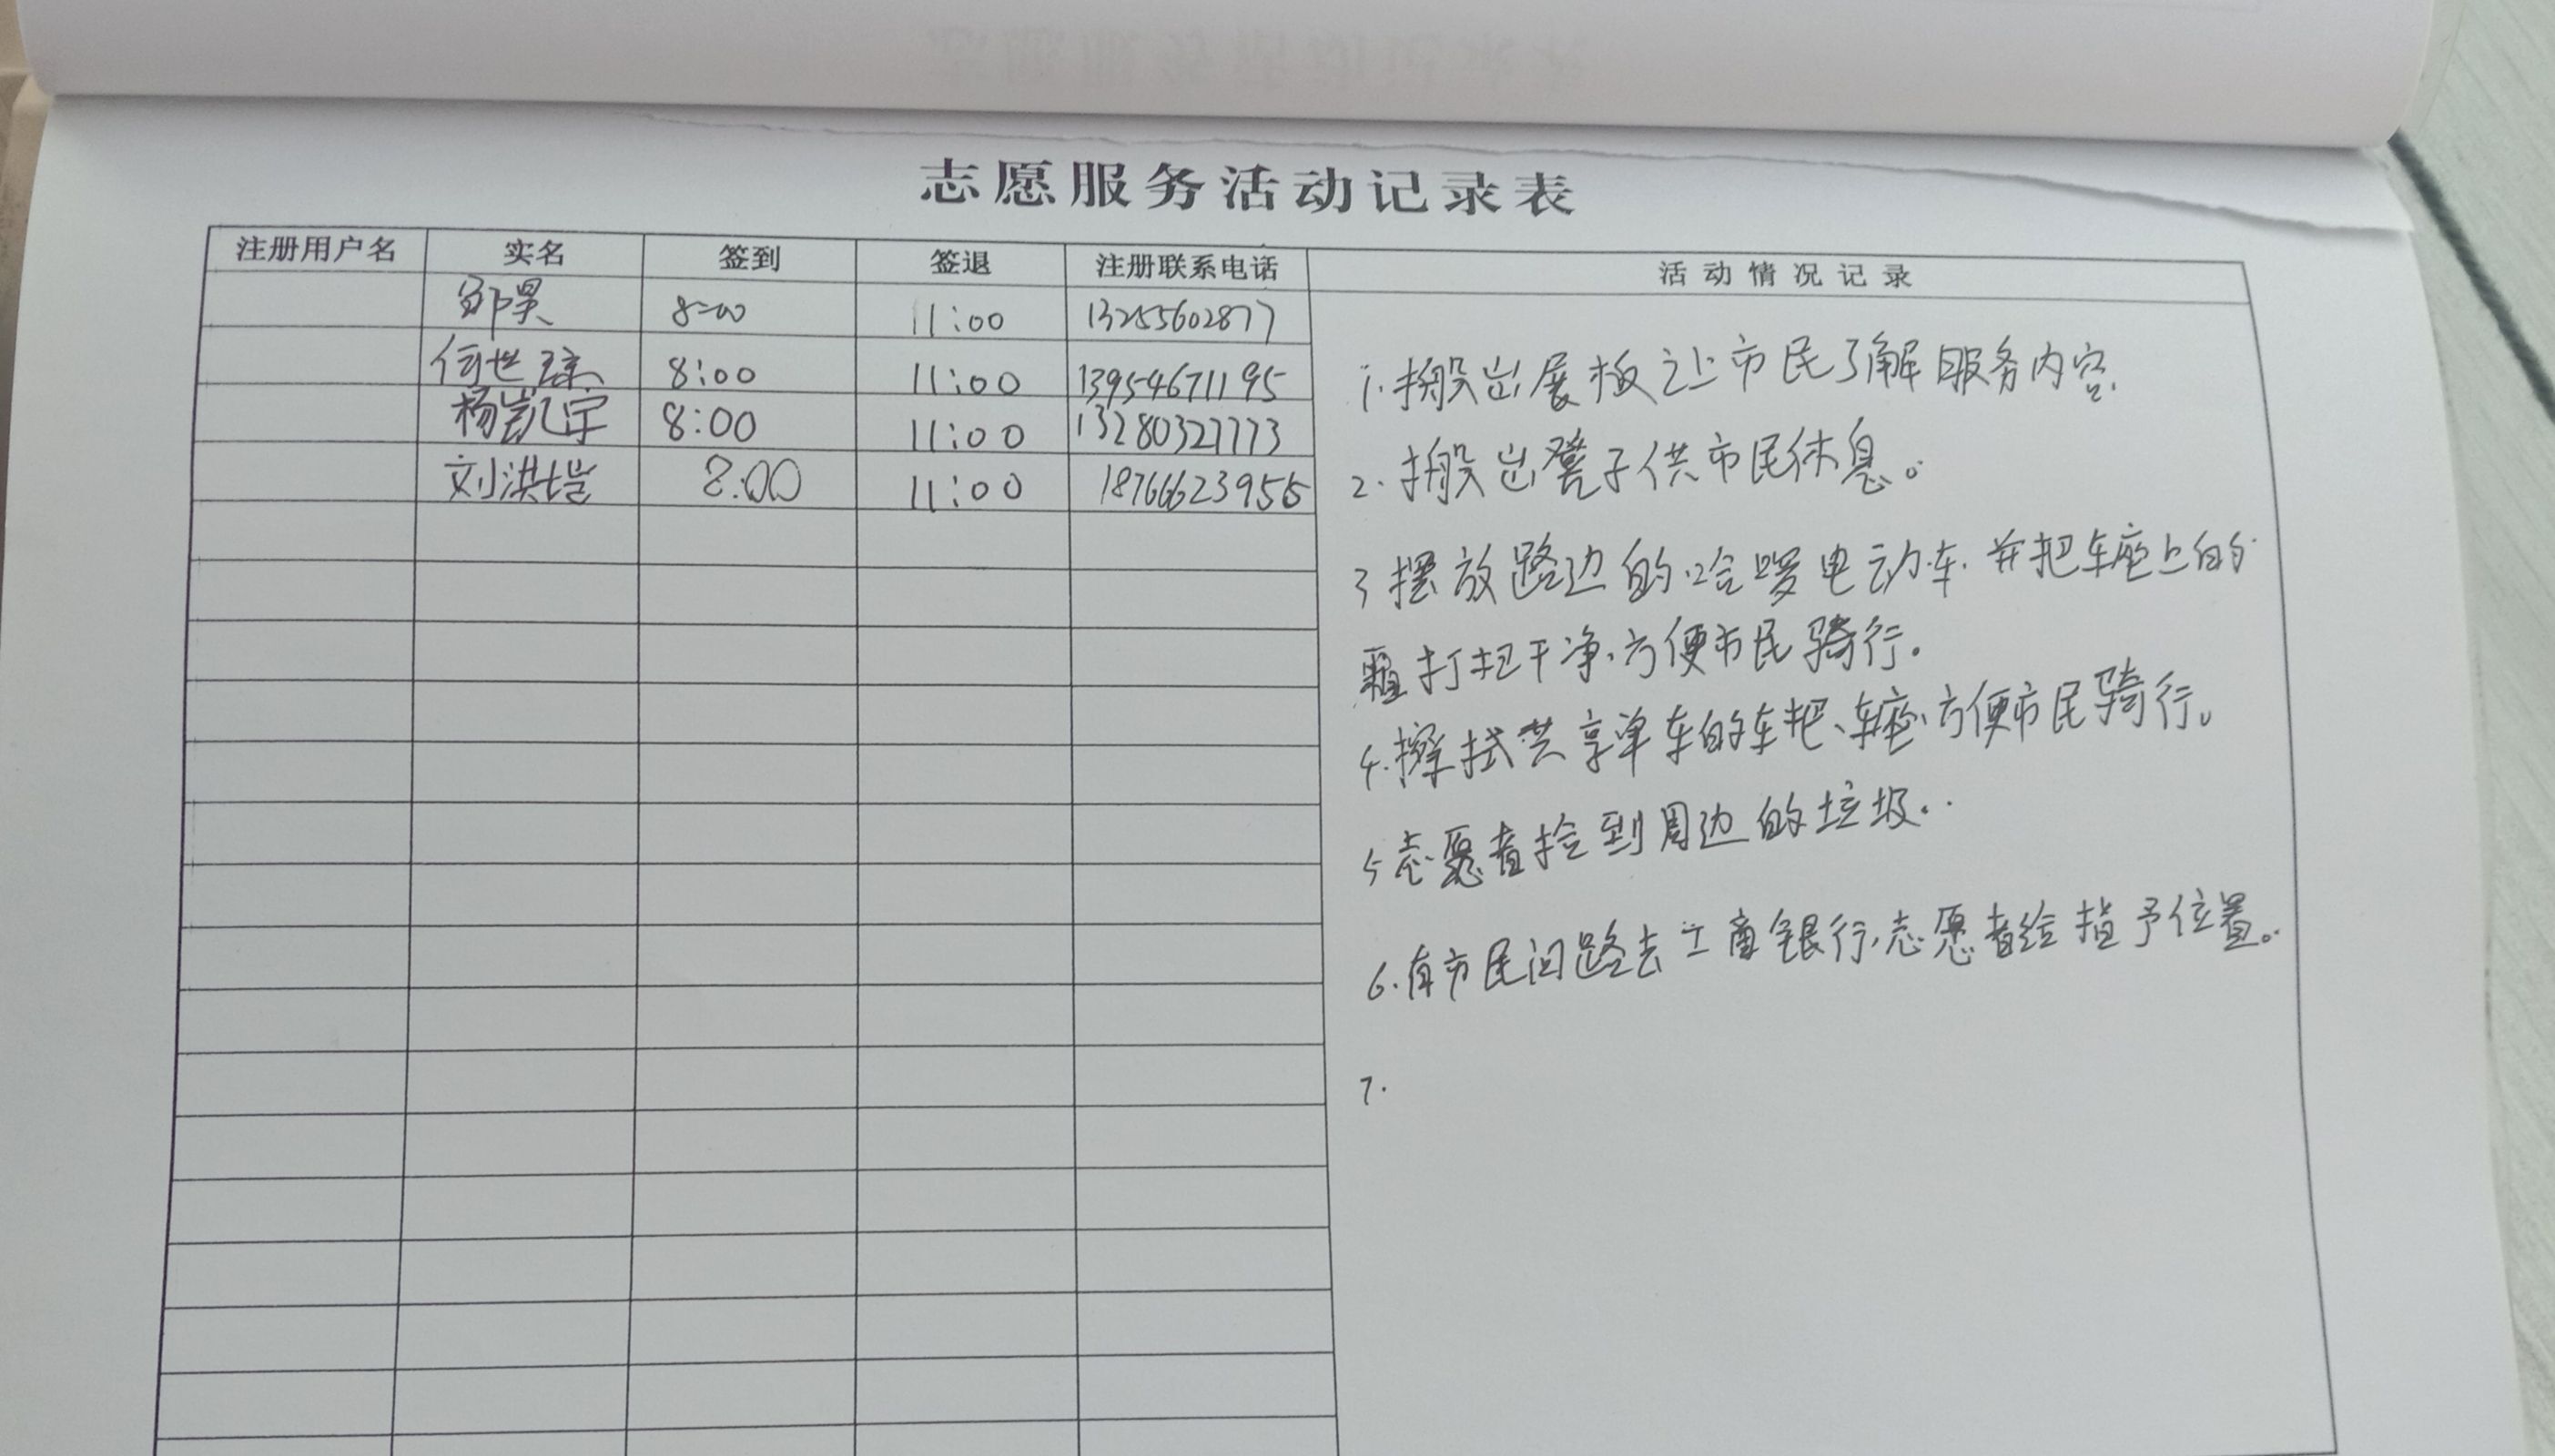 志愿服务活动记录表
注册用户名 实名 签到 签退 注册联系电话 活动情况记录
邹昊 8:00 11:00 13255602877
何世 8:00 11:00 13954671195
杨凯宇 8:00 11:00 13280327773
刘洪恺 8:00 11:00 18766623955
1.搬出展板让市民了解服务内容.
2.搬出凳子供市民休息。
3 摆放路边的哈啰电动车.并把车座上的
打扫干净,方便市民骑行。
4.擦拭共享单车的车把、车座,方便市民骑行。
5 志愿者捡到周边的垃圾..
6.有市民问路去工商银行,志愿者给指予位置。
7.